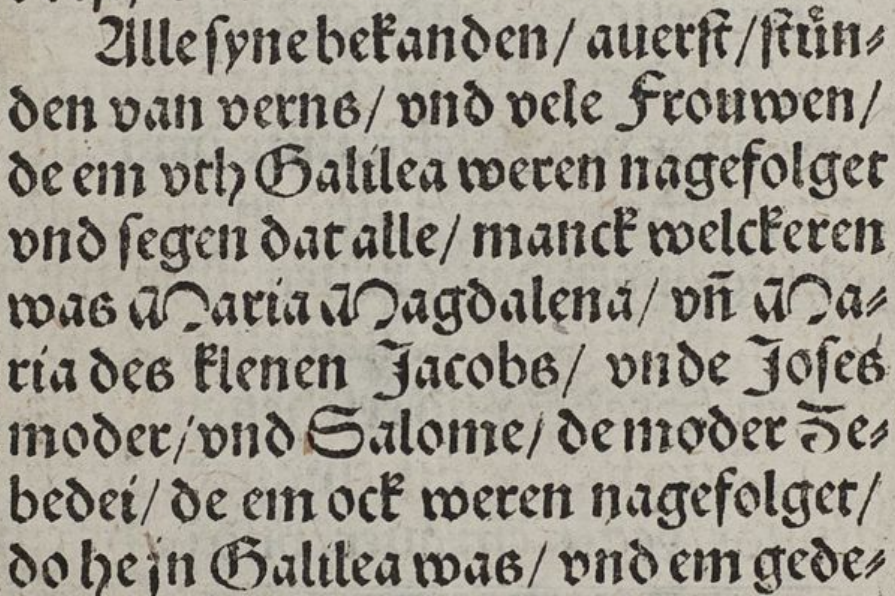 Alle syne bekanden / auerst / stůn⸗
den van verns / vnd vele Frouwen /
de em vth Galilea weren nagefolget
vnd segen dat alle / manck welckeren
was Maria Magdalena / vn̄ Ma⸗
ria des klenen Jacobs / vnde Joses
moder / vnd Salome / de moder Ze⸗
bedei / de em ock weren nagefolget /
do he jn Galilea was / vnd em gede⸗